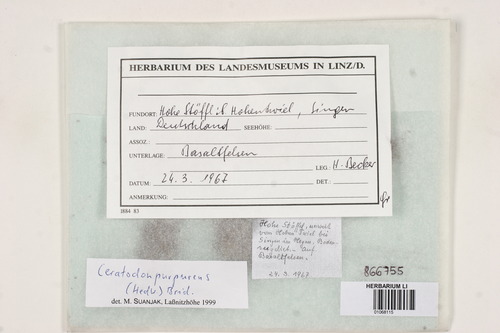 HERBARIUM DES LANDESMUSEUMS IN LINZ/D.
FUNDORT: Hohe Stöffl b. Hohentwiel, Singen
LAND: Deutschland SEEHÖHE:
ASSOZ.:
UNTERLAGE: Basaltfelsen
LEG.: H. Becker
DATUM: 24. 3. 1967 DET.:
ANMERKUNG:
1884 83
Hohe Stöffel,
von Hohen Twiel bei
Singen im Hegau, Boden-
seegebiet. Auf
Basaltfelsen.
24. 3. 1967
Ceratodon purpureus
(Hedw.) Brid.
det. M. SUANJAK, Laßnitzhöhe 1999
866755
HERBARIUM LI
01068115